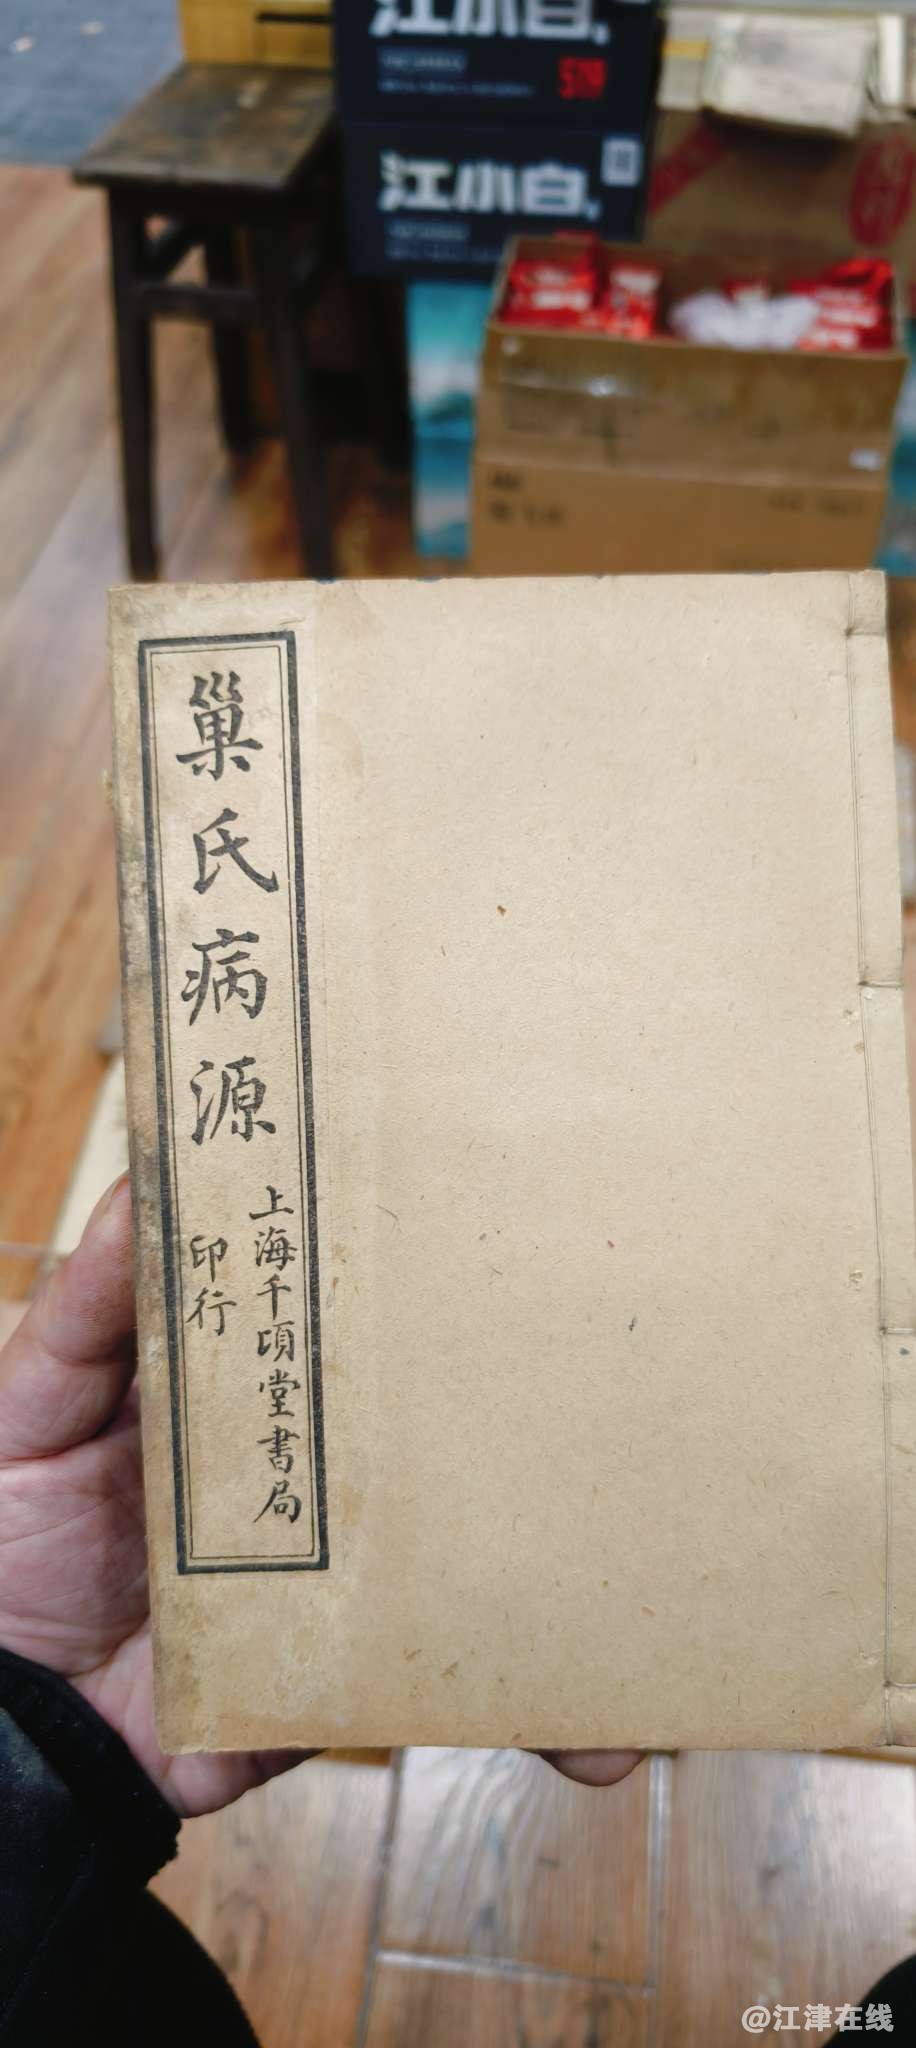 江小白
江小白
巢氏病源
上海千頃堂書局
印行
@江津在线